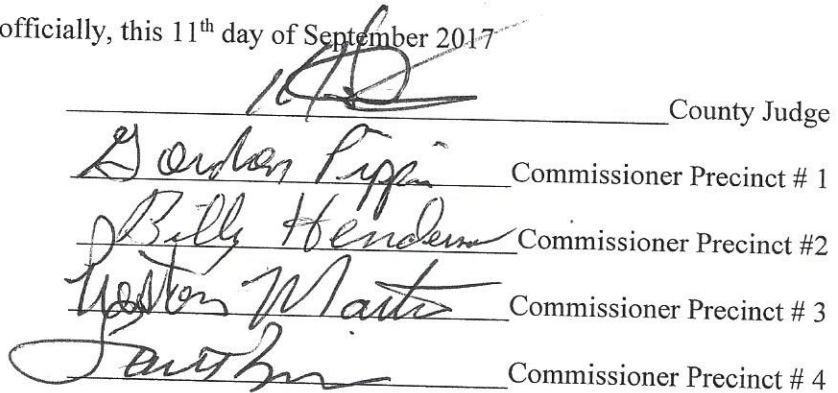 officially, this 11th day of September 2017
County Judge
Gordon Pippin Commissioner Precinct # 1
Billy Henderson Commissioner Precinct #2
Preston Martin Commissioner Precinct # 3
Commissioner Precinct # 4